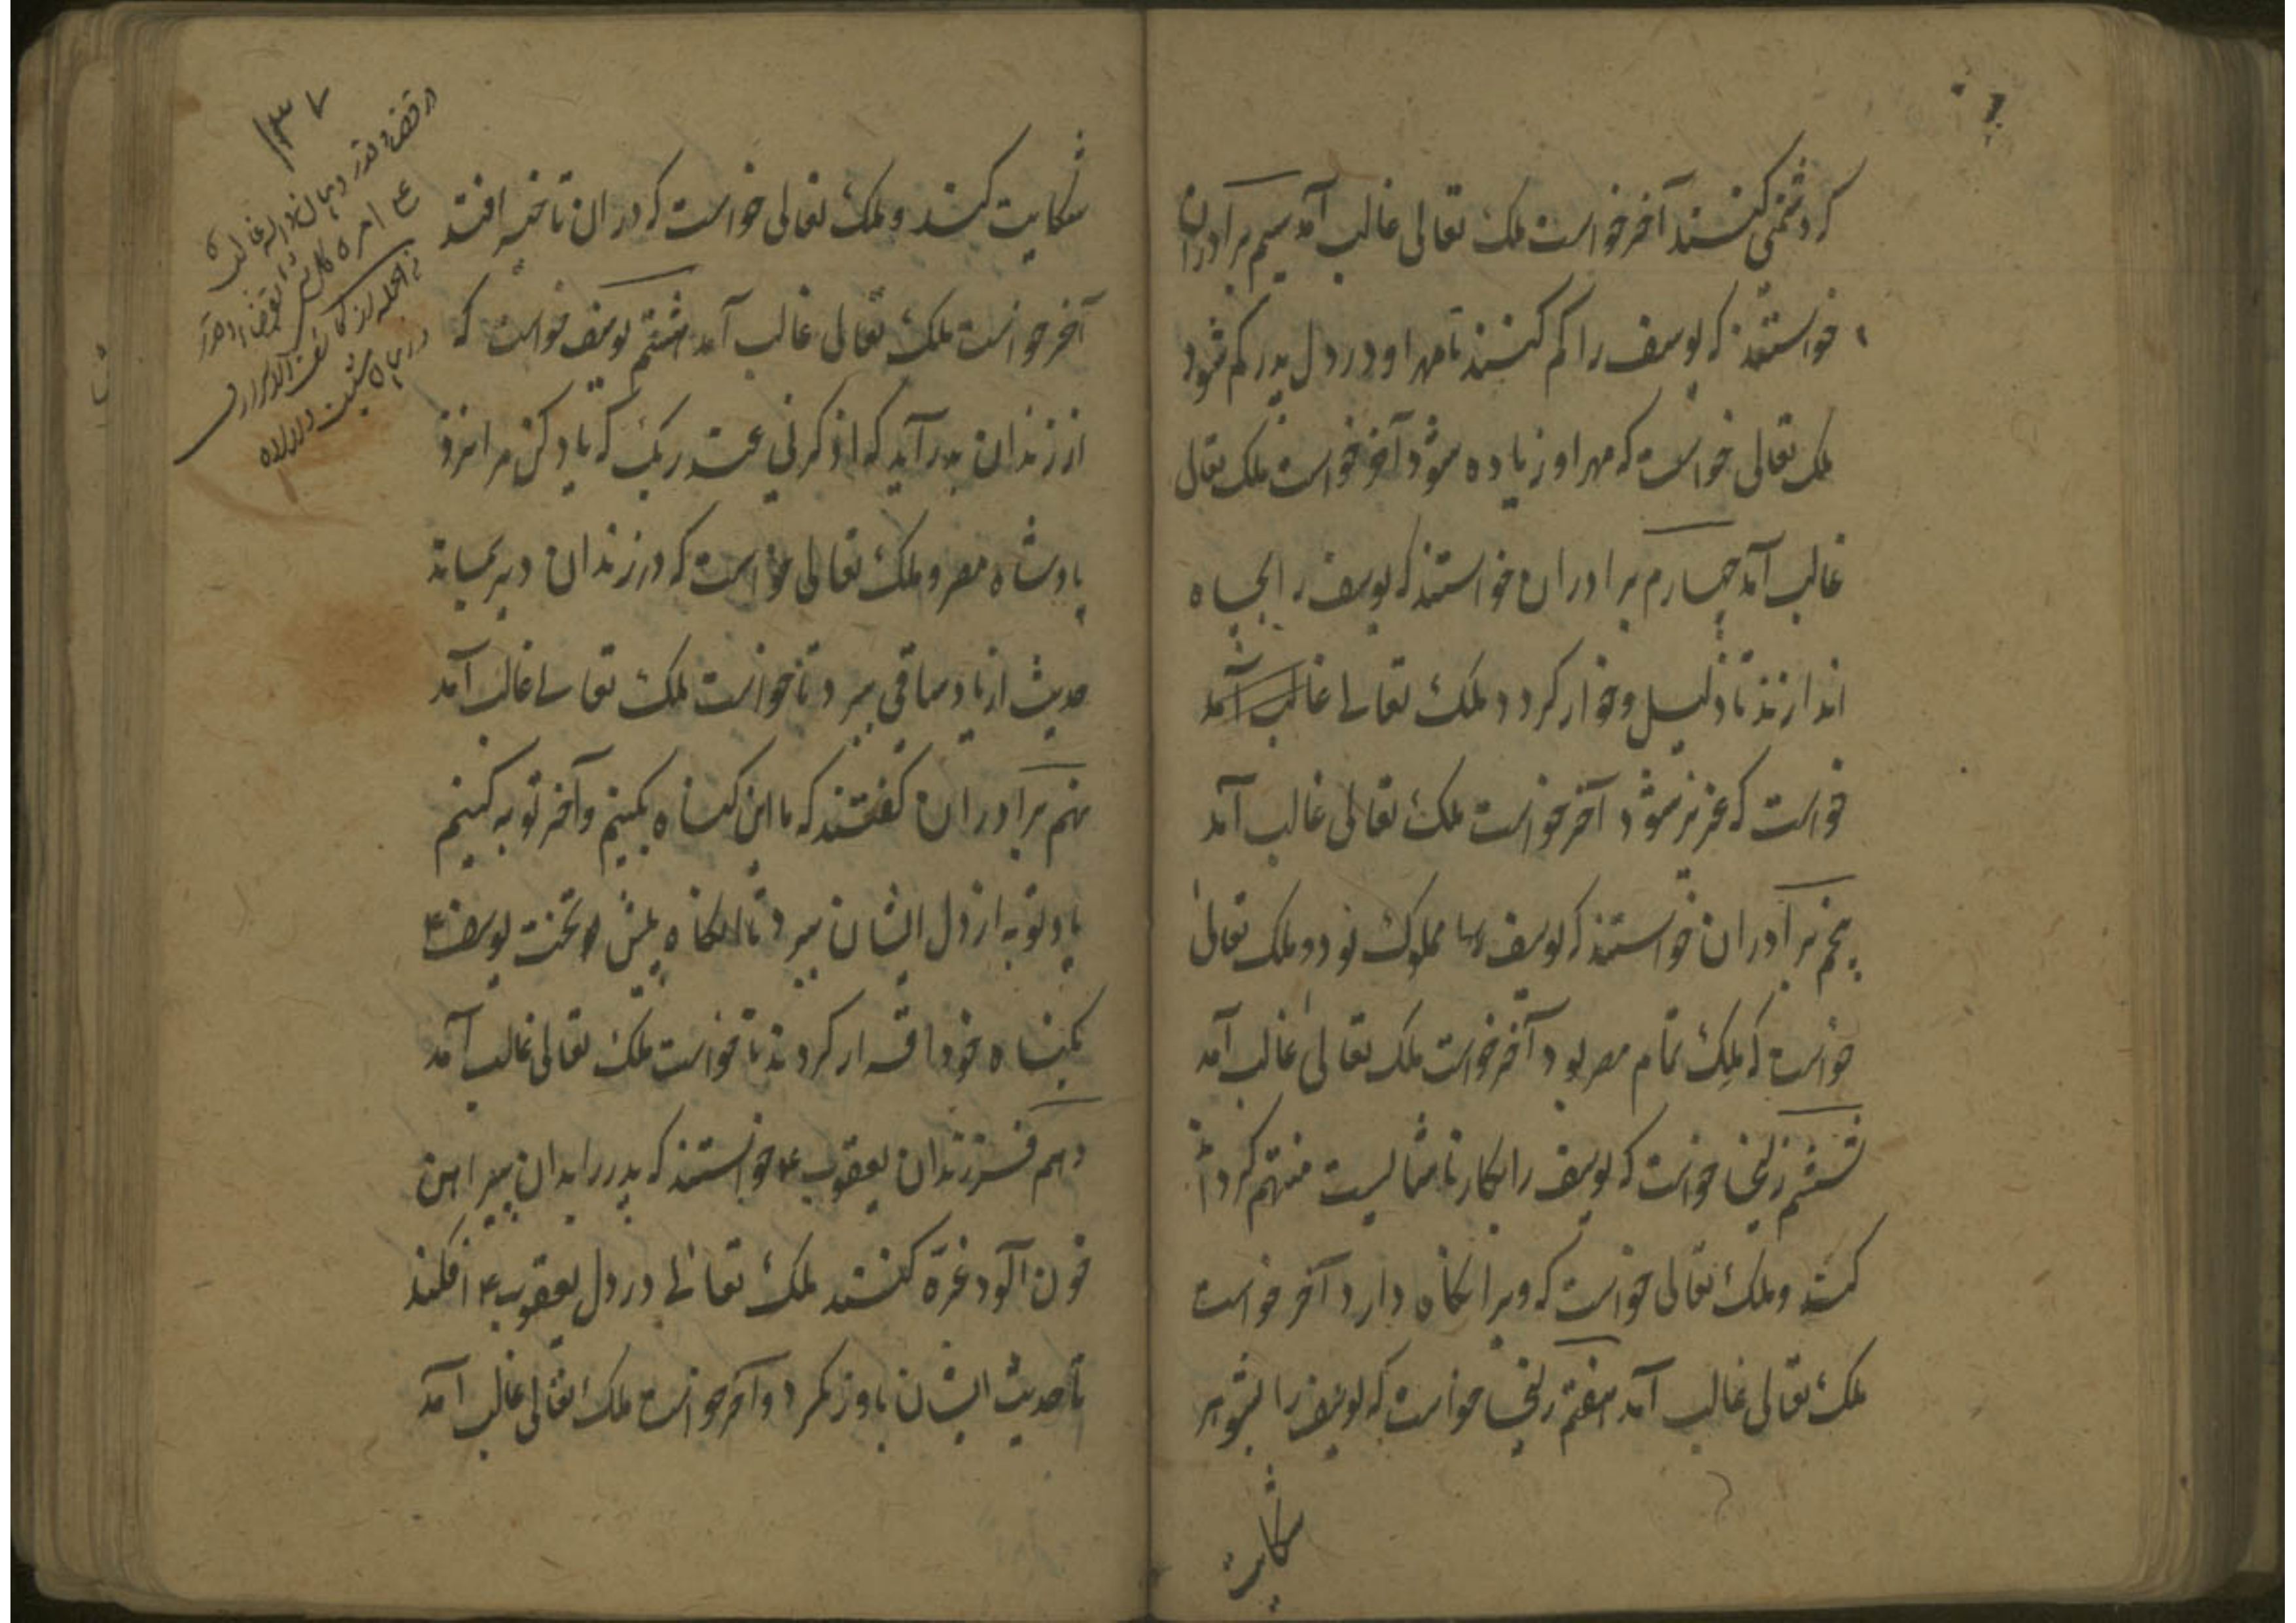 کر دشمنی کنند آخر خواست ملک تعالی غالب آمد سیم برادران
خواستند که یوسف را کم کنند تا مهر او در دل پدر کم شود
ملک تعالی خواست که مهر او زیاده شود آخر خواست ملک تعالی
غالب آمد چهارم برادران خواستند که یوسف را بچاه
اندازند تا ذلیل و خوار کردد و ملک تعالے غالب آمد
خواست که عزیز شود آخر خواست ملک تعالی غالب آمد
پنجم برادران خواستند که یوسف مملوک بود و ملک تعالی
خواست که ملک تمام مصر بود آخر خواست ملک تعالی غالب آمد
ششم زلیخا خواست که یوسف را بکار ناشایست متهم کرد
کند و ملک تعالی خواست که ویرا نکاه دارد آخر خواست
ملک تعالی غالب آمد هفتم زلیخا خواست که یوسف را بشوهر
شکایت
شکایت کند و ملک تعالی خواست که در ان تاخیر افتد
آخر خواست ملک تعالی غالب آمد هشتم یوسف خواست که
از زندان بدر آید که اذکرنی عند ربک که یاد کن مرا نزد
پادشاه مصر و ملک تعالی خواست که در زندان دیر بماند
حدیث از یاد ساقی ببرد تا خواست ملک تعالے غالب آمد
نهم برادران کفتند که ما این کناه بکنیم و آخر توبه کنیم
یاد توبه از دل ایشان ببرد تا انکاه پیش تخت یوسف ع
بکناه خود اقرار کردند تا خواست ملک تعالی غالب آمد
دهم فرزندان یعقوب ع خواستند که پدر را بدان پیراهن
خون آلود غره کنند ملک تعالی در دل یعقوب ع افکند
تا حدیث ایشان باور نکرد و آخر خواست ملک تعالی غالب آمد
۱۳۷